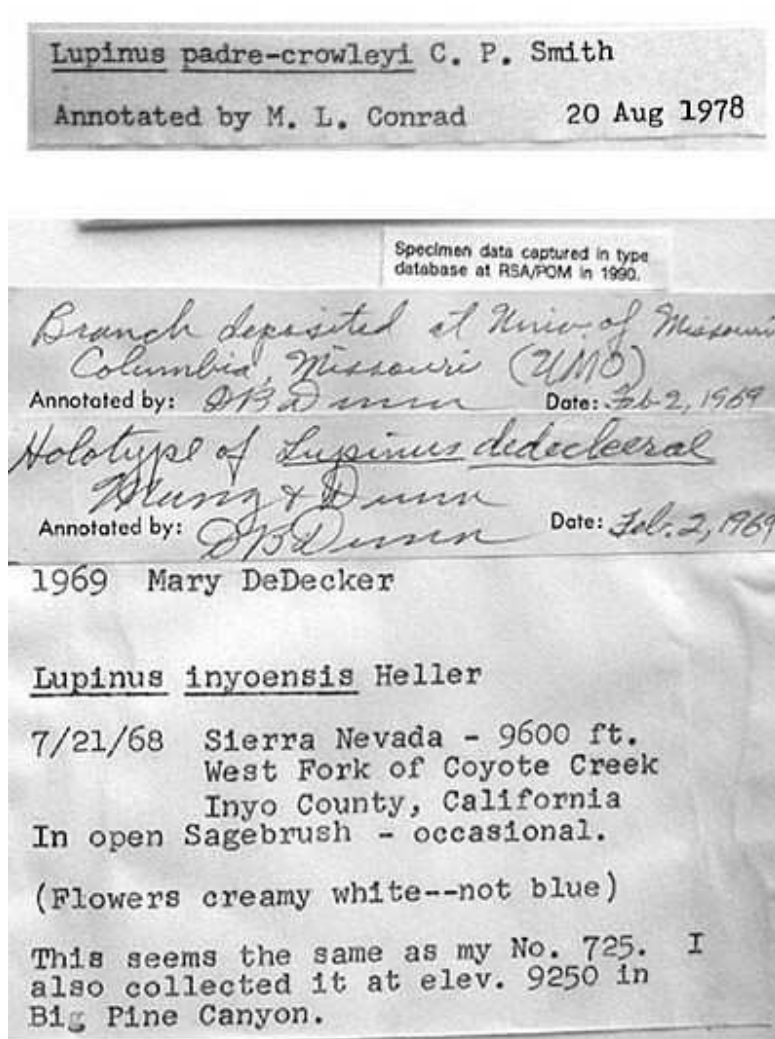 Lupinus padre-crowleyi C. P. Smith
Annotated by M. L. Conrad 20 Aug 1978
Specimen data captured in type
database at RSA/POM in 1990.
Branch deposited at Univ. of Missouri
Columbia, Missouri (UMO)
Annotated by: DB Dunn Date: Feb 2, 1969
Holotype of Lupinus dedeckerae
Munz & Dunn
Annotated by: DB Dunn Date: Feb. 2, 1969
1969 Mary DeDecker
Lupinus inyoensis Heller
7/21/68 Sierra Nevada - 9600 ft.
West Fork of Coyote Creek
Inyo County, California
In open Sagebrush - occasional.
(Flowers creamy white--not blue)
This seems the same as my No. 725. I
also collected it at elev. 9250 in
Big Pine Canyon.